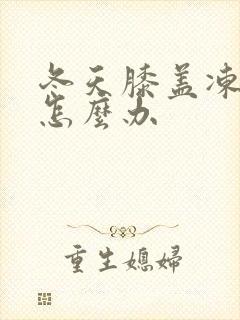 冬天膝盖凍
怎麼办
重生媳婦